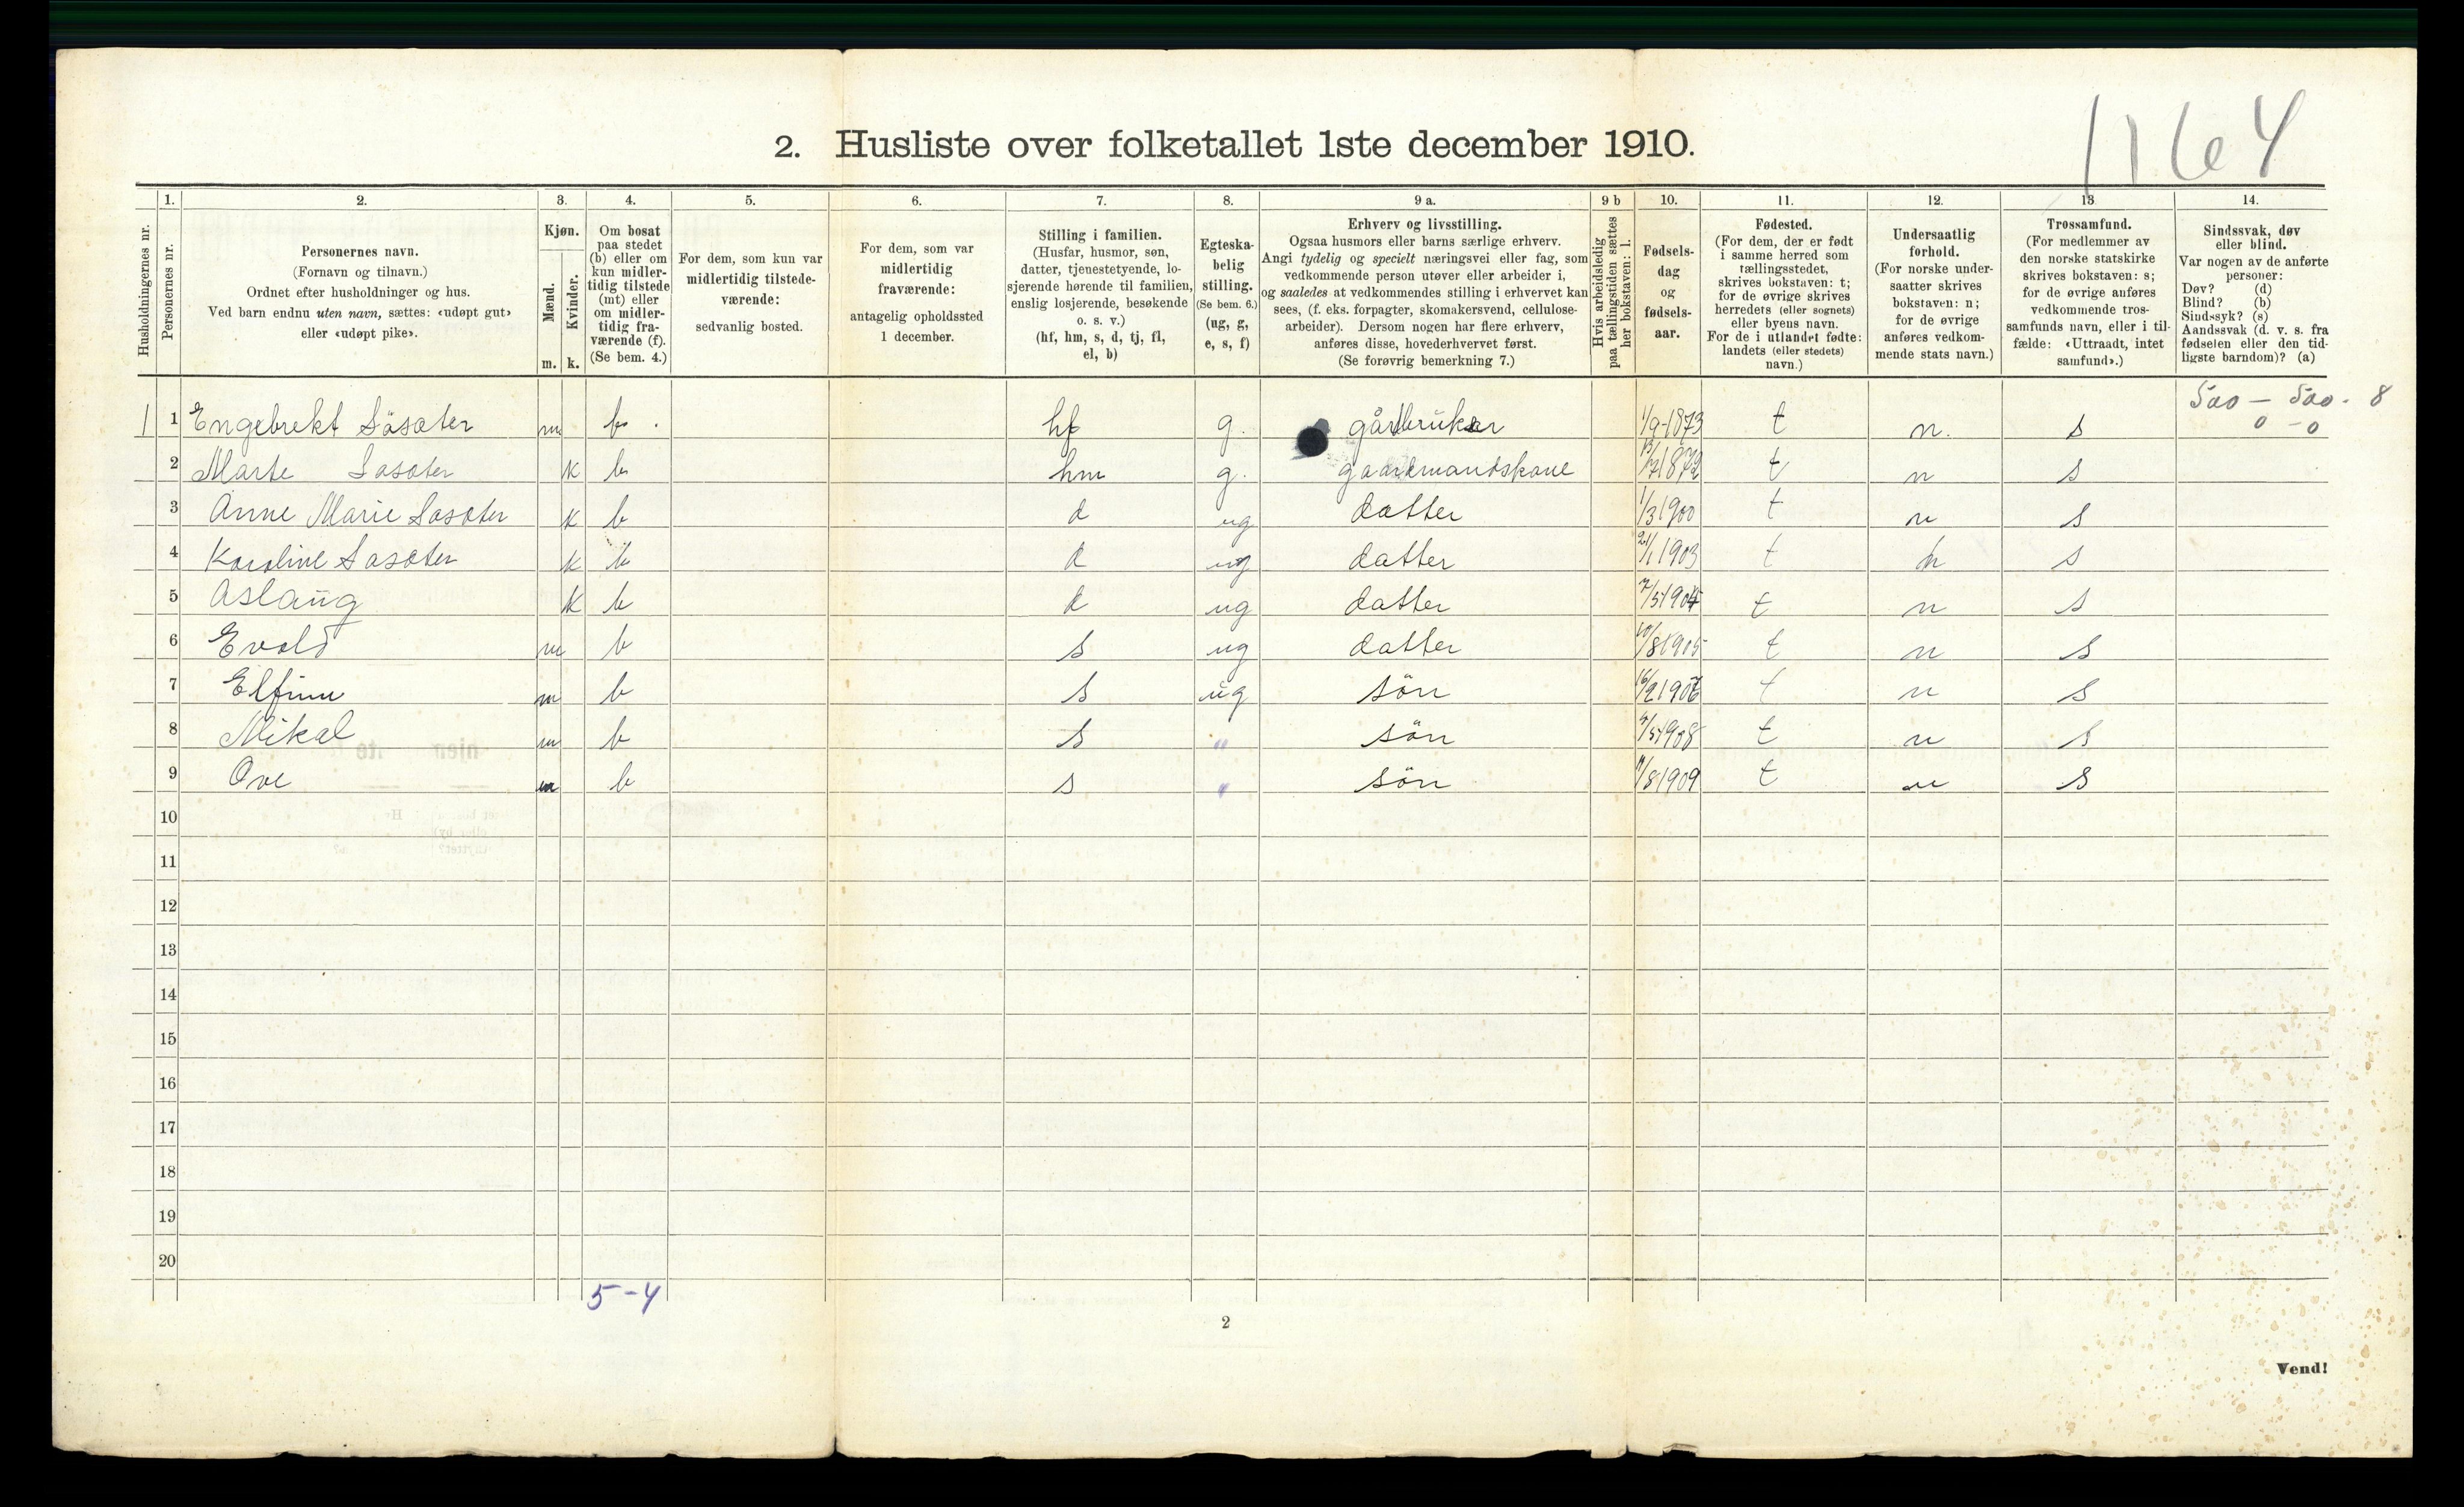 1164
2. Husliste over folketallet 1ste december 1910.
Husholdningernes nr.
1. Personernes nr.
2. Personernes navn.
(Fornavn og tilnavn.)
Ordnet efter husholdninger og hus.
Ved barn endnu uten navn, sættes: «udøpt gut»
eller «udøpt pike».
3. Kjøn.
Mænd. m.
Kvinder. k.
4. Om bosat
paa stedet
(b) eller om
kun midler-
tidig tilstede
(mt) eller
om midler-
tidig fra-
værende (f).
(Se bem. 4.)
5. For dem, som kun var
midlertidig tilstede-
værende:
sedvanlig bosted.
6. For dem, som var
midlertidig
fraværende:
antagelig opholdssted
1 december.
7. Stilling i familien.
(Husfar, husmor, søn,
datter, tjenestetyende, lo-
sjerende hørende til familien,
enslig losjerende, besøkende
o. s. v.)
(hf, hm, s, d, tj, fl,
el, b)
8. Egteska-
belig
stilling.
(Se bem. 6.)
(ug, g,
e, s, f)
9 a. Erhverv og livsstilling.
Ogsaa husmors eller barns særlige erhverv.
Angi tydelig og specielt næringsvei eller fag, som
vedkommende person utøver eller arbeider i,
og saaledes at vedkommendes stilling i erhvervet kan
sees, (f. eks. forpagter, skomakersvend, cellulose-
arbeider). Dersom nogen har flere erhverv,
anføres disse, hovederhvervet først.
(Se forøvrig bemerkning 7.)
9 b Hvis arbeidsledig
paa tællingstiden sættes
her bokstaven: l.
10. Fødsels-
dag
og
fødsels-
aar.
11. Fødested.
(For dem, der er født
i samme herred som
tællingsstedet,
skrives bokstaven: t;
for de øvrige skrives
herredets (eller sognets)
eller byens navn.
For de i utlandet fødte:
landets (eller stedets)
navn.)
12. Undersaatlig
forhold.
(For norske under-
saatter skrives
bokstaven: n;
for de øvrige
anføres vedkom-
mende stats navn.)
13. Trossamfund.
(For medlemmer av
den norske statskirke
skrives bokstaven: s;
for de øvrige anføres
vedkommende tros-
samfunds navn, eller i til-
fælde: «Uttraadt, intet
samfund».)
14. Sindssvak, døv
eller blind.
Var nogen av de anførte
personer:
Døv? (d)
Blind? (b)
Sindssyk? (s)
Aandssvak (d. v. s. fra
fødselen eller den tid-
ligste barndom)? (a)
500 - 500 - 8
0 - 0
1 1 Engebrekt Säsæter m b hf g. gårdbruker 1/9-1873 t n. s
2 Marte Sasæter k b hm g. gaardmandskone t n s
3 Anne Marie Sasæter k b d ug datter 1/3 1900 t n s
4 Karoline Sasæter k b d ug datter 21/1 1903 t n s
5 Aslaug k b d ug datter t n s
6 Evald m b s ug datter 10/8 1905 t n s
7 Elfinn m b s ug sön t n s
8 Mikal m b s " sön t n s
9 Ove m b s " sön t n s
10
11
12
13
14
15
16
17
18
19
20
5-4
2
Vend!